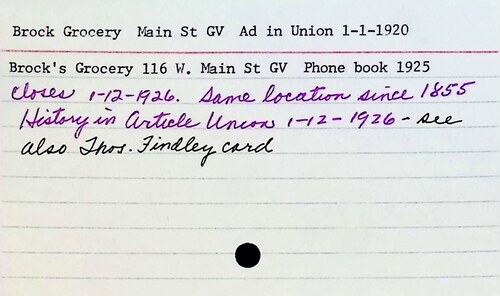 Brock Grocery Main St GV Ad in Union 1-1-1920
Brock's Grocery 116 W. Main St GV Phone book 1925
Closes 1-12-1926. Same location since 1855
History in Article Union 1-12-1926 - see
also Thos. Findley card